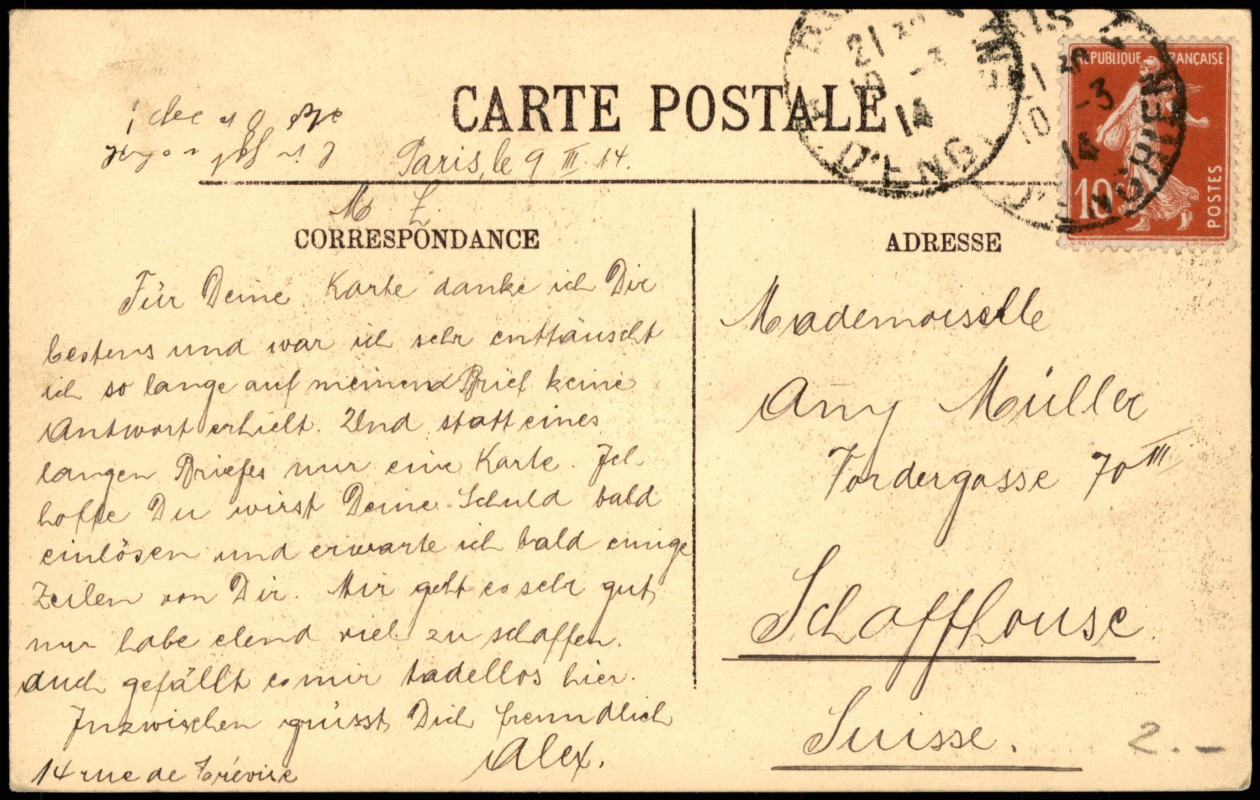 CARTE POSTALE
Paris, le 9 III. 14.
M L
CORRESPONDANCE
Für Deine Karte danke ich Dir
bestens und war ich sehr enttäuscht
ich so lange auf meinen Brief keine
Antwort erhielt. Und statt eines
langen Briefes nur eine Karte. Ich
hoffe Du wirst Deine Schuld bald
einlösen und erwarte ich bald einige
Zeilen von Dir. Mir geht es sehr gut,
nur habe elend viel zu schaffen.
Auch gefällt es mir tadellos hier.
Inzwischen grüsst Dich freundlich
Alex.
14 rue de Trévise
ADRESSE
Mademoiselle
Amy Müller
Vordergasse 70 III
Schaffhouse
Suisse.
2.–
REPUBLIQUE FRANÇAISE
10
POSTES
21
10 -3
14
21
10 -3
14